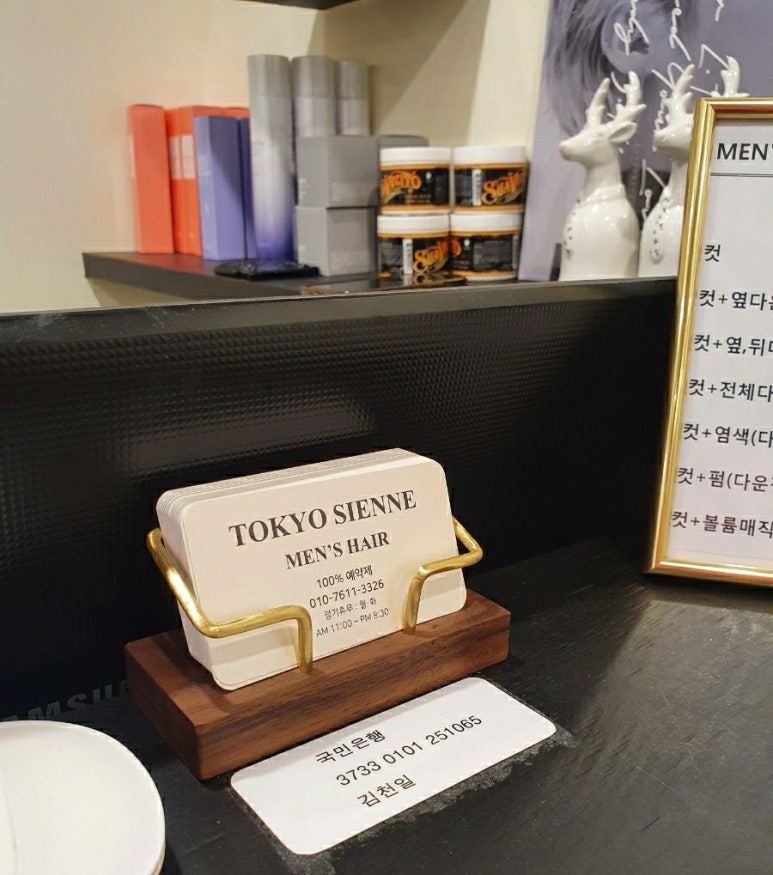 TOKYO SIENNE
MEN'S HAIR
100% 예약제
010-7611-3326
정기휴무 : 월·화
AM 11:00 ~ PM 8:30
국민은행
3733 0101 251065
김천일
MEN'
컷
컷+옆다운
컷+옆,뒤
컷+전체다
컷+염색(다
컷+펌(다운
컷+볼륨매직